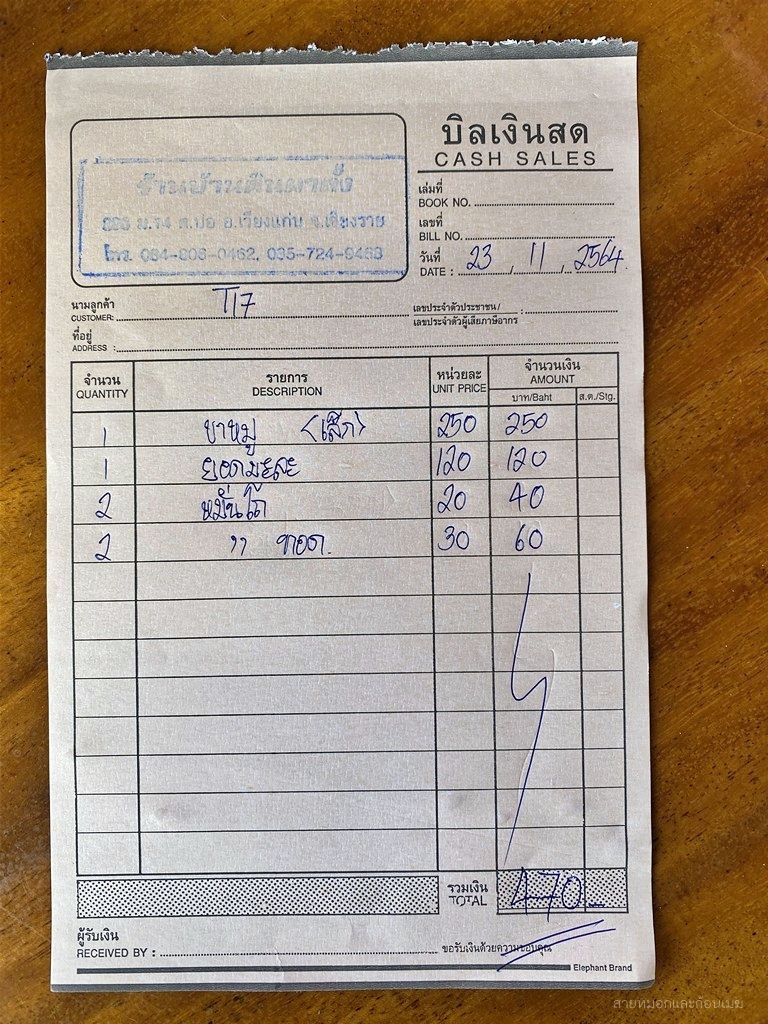 บิลเงินสด
CASH SALES
ร้านบ้านดินผาตั้ง
ม.14 ต.ปอ อ.เวียงแก่น จ.เชียงราย
โทร.
เล่มที่
BOOK NO.
เลขที่
BILL NO.
วันที่
DATE : 23 , 11 , 2564
นามลูกค้า
CUSTOMER: T17
เลขประจำตัวประชาชน /
เลขประจำตัวผู้เสียภาษีอากร :
ที่อยู่
ADDRESS :
จำนวน รายการ หน่วยละ จำนวนเงิน
QUANTITY DESCRIPTION UNIT PRICE AMOUNT
บาท/Baht ส.ต./Stg.
1 ขาหมู (เล็ก) 250 250
1 ยอดมะระ 120 120
2 หมั่นโถ 20 40
2 " ทอด 30 60
รวมเงิน
TOTAL 470-
ผู้รับเงิน
RECEIVED BY : ขอรับเงินด้วยความขอบคุณ
Elephant Brand
สายหมอกและก้อนเมฆ